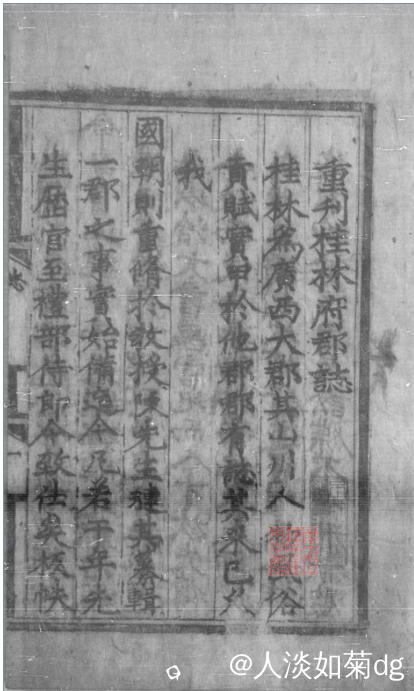 重刊桂林府郡誌
桂林為廣西大郡其山川人俗
貢賦實甲於他郡郡有誌其來已久
我
國朝則重脩於教授陳先生璉其纂輯
一郡之事實始備迄今凡若干年先
生歷官至禮部侍郎今致仕矣板帙
@人淡如菊dg